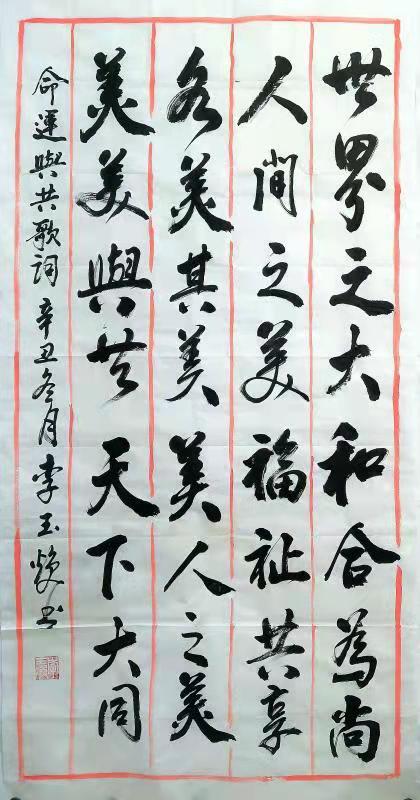 世界之大和合為尚
人間之美福祉共享
各美其美美人之美
美美與共天下大同
命運與共歌詞 辛丑冬月 李玉 书